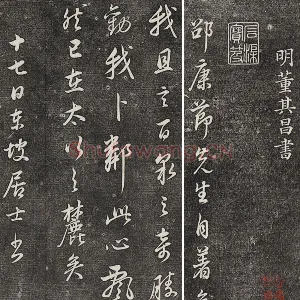 明董其昌書
邵康節先生自著
我且言百泉之奇勝
勸我卜鄰此心飄
然已在太行之麓矣
十七日東坡居士書